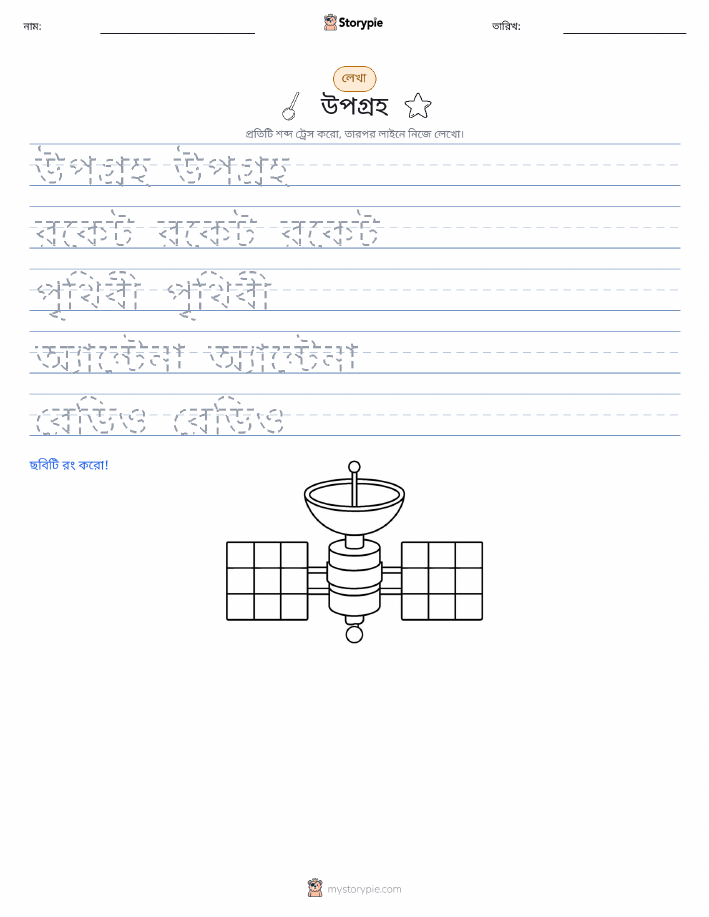 নাম:
Storypie
তারিখ:
লেখা
উপগ্রহ
প্রতিটি শব্দ ট্রেস করো, তারপর লাইনে নিজে লেখো।
উপগ্রহ উপগ্রহ
রকেট রকেট রকেট
পৃথিবী পৃথিবী
অ্যান্টেনা অ্যান্টেনা
রেডিও রেডিও
ছবিটি রং করো!
mystorypie.com